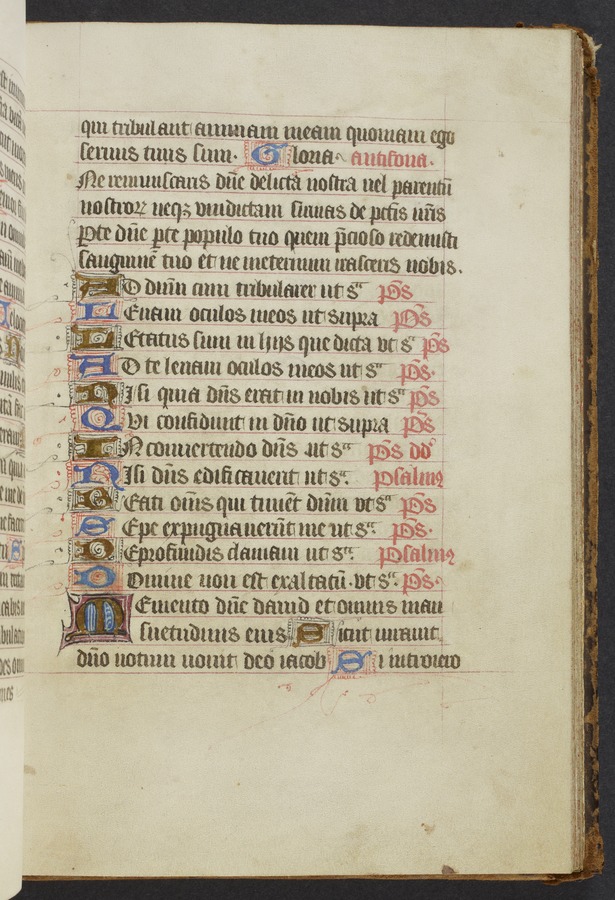 qui tribulant animam meam quoniam ego
seruus tuus sum. Gloria antifona.
Ne reminiscaris dñe delicta nostra uel parentū
nostroꝝ neqꝫ vindictam sumas de pctis nr̄is
Pce dñe pce populo tuo quem p̄cioso redemisti
sanguine tuo et ne in eternum irasceris nobis.
AD dn̄m cum tribularer ut sa ps
LEuaui oculos meos ut supra ps
LEtatus sum in hijs que dicta vt s ps
AD te leuaui oculos meos ut sa ps.
NIsi quia dn̄s erat in nobis ut sa ps
QVi confidunt in dn̄o ut supra ps
IN conuertendo dn̄s ut sa ps dd
NIsi dn̄s edificauerit ut sa. psalmꝰ
BEati om̄s qui timēt dn̄m vt sa ps
SEpe expugnauerūt me ut sa. ps.
DEprofundis clamaui ut sa. psalmꝰ
DOmine non est exaltatū. vt sa. ps.
MEmento dn̄e dauid et omnis man
suetudinis eius Sicut iurauit
dn̄o uotum uouit deo iacob Si introiero